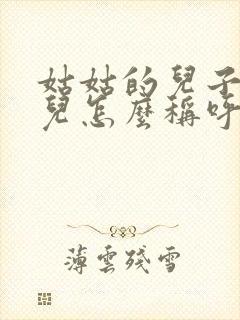 姑姑的兒子的女
兒怎麼稱呼
薄雲殘雪